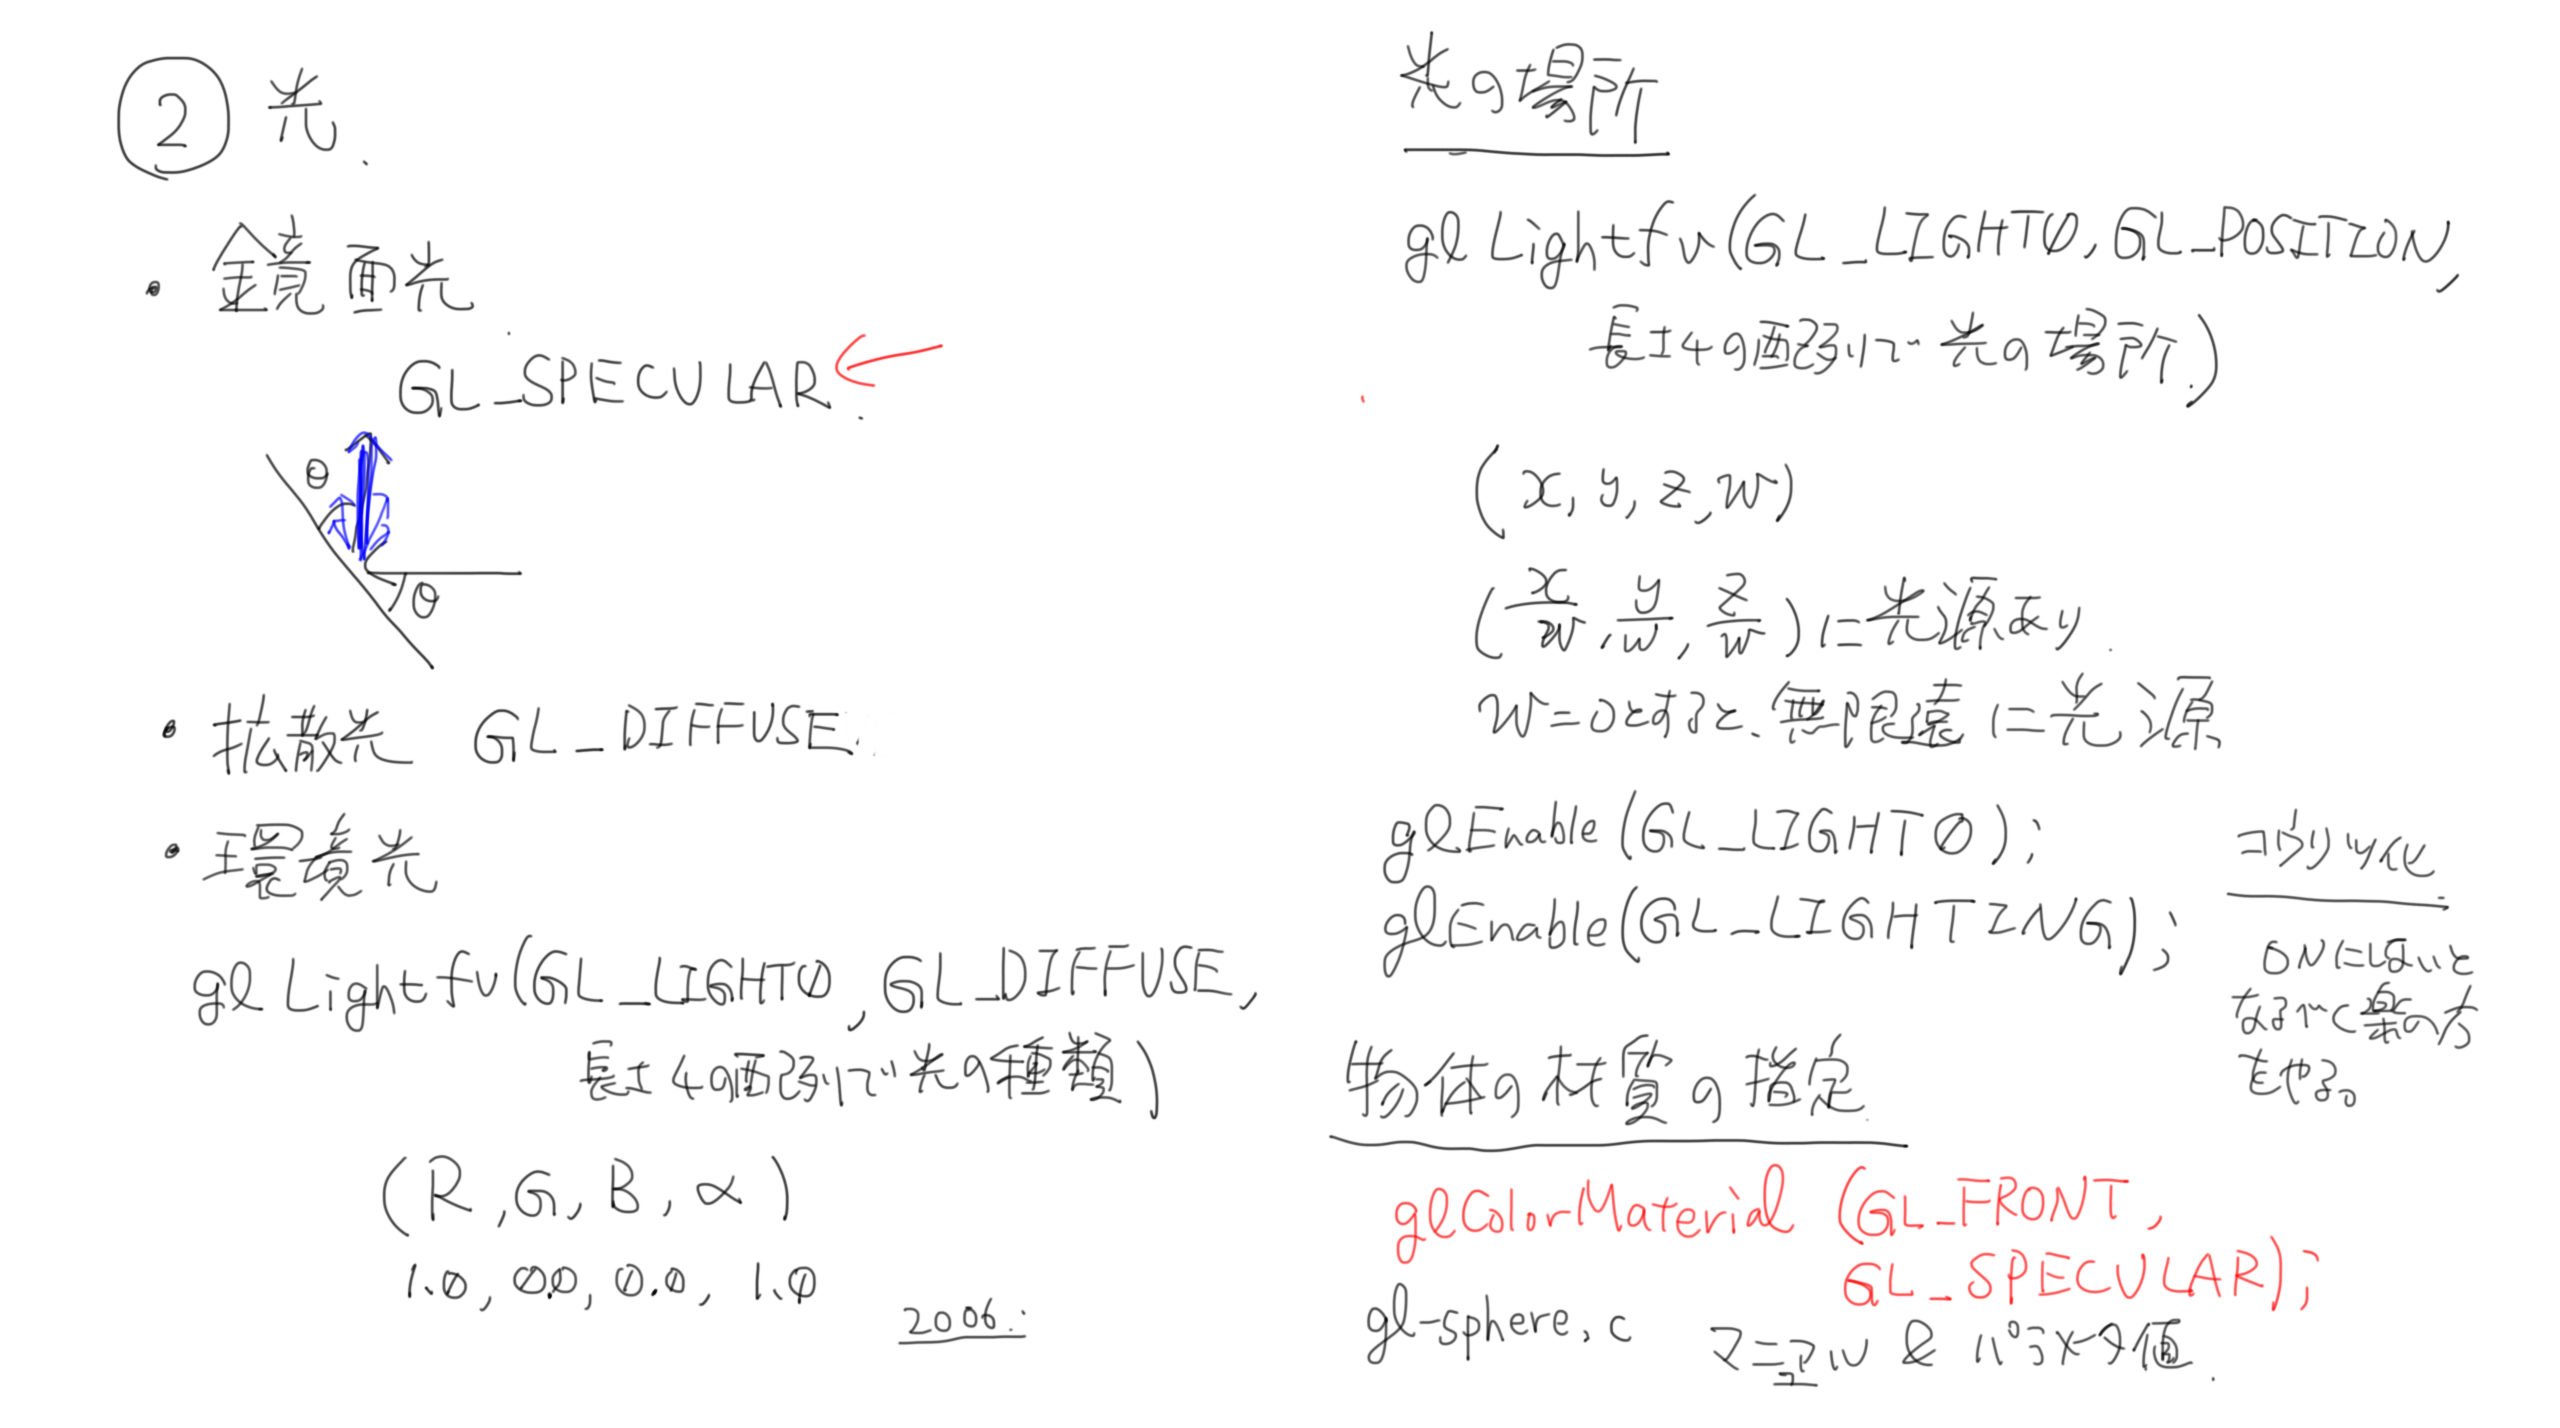 ② 光.
・鏡面光
GL_SPECULAR.
θ
θ
・拡散光 GL_DIFFUSE.
・環境光
glLightfv(GL_LIGHT0, GL_DIFFUSE,
長さ4の配列で光の種類)
(R, G, B, α)
1.0, 0.0, 0.0, 1.0
2006.
光の場所
glLightfv(GL_LIGHT0, GL_POSITION,
長さ4の配列で光の場所.)
(x, y, z, w)
(x/w, y/w, z/w)に光源あり.
w=0とすると、無限遠に光源
glEnable(GL_LIGHT0);
glEnable(GL_LIGHTING);
コウリツ化
ONにしないと
なるべく楽の方
をやる。
物体の材質の指定
glColorMaterial (GL_FRONT,
GL_SPECULAR);
gl-sphere.c マニュアル & パラメータ値.